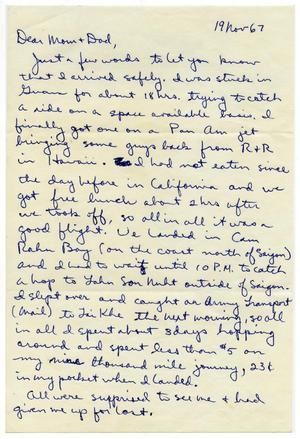 19 Nov 67
Dear Mom + Dad,
Just a few words to let you know
that I arrived safely. I was stuck in
Guam for about 18 hrs. trying to catch
a ride on a space available basis. I
finally got one on a Pan Am jet
bringing some guys back from R+R
in Hawaii. I had not eaten since
the day before in California and we
got free lunch about 2 hrs after
we took off, so all in all it was a
good flight. We landed in Cam
Rahn Bay (on the coast north of Saigon)
and I had to wait until 10 P.M. to catch
a hop to Tahn Son Nuht outside of Saigon.
I slept over and caught an Army Transport
(Mail) to Lai Khe the next morning, so all
in all I spent about 3 days hopping
around and spent less than $5 on
my nine thousand mile journey, 23¢
in my pocket when I landed.
All were surprised to see me + had
given me up for lost.